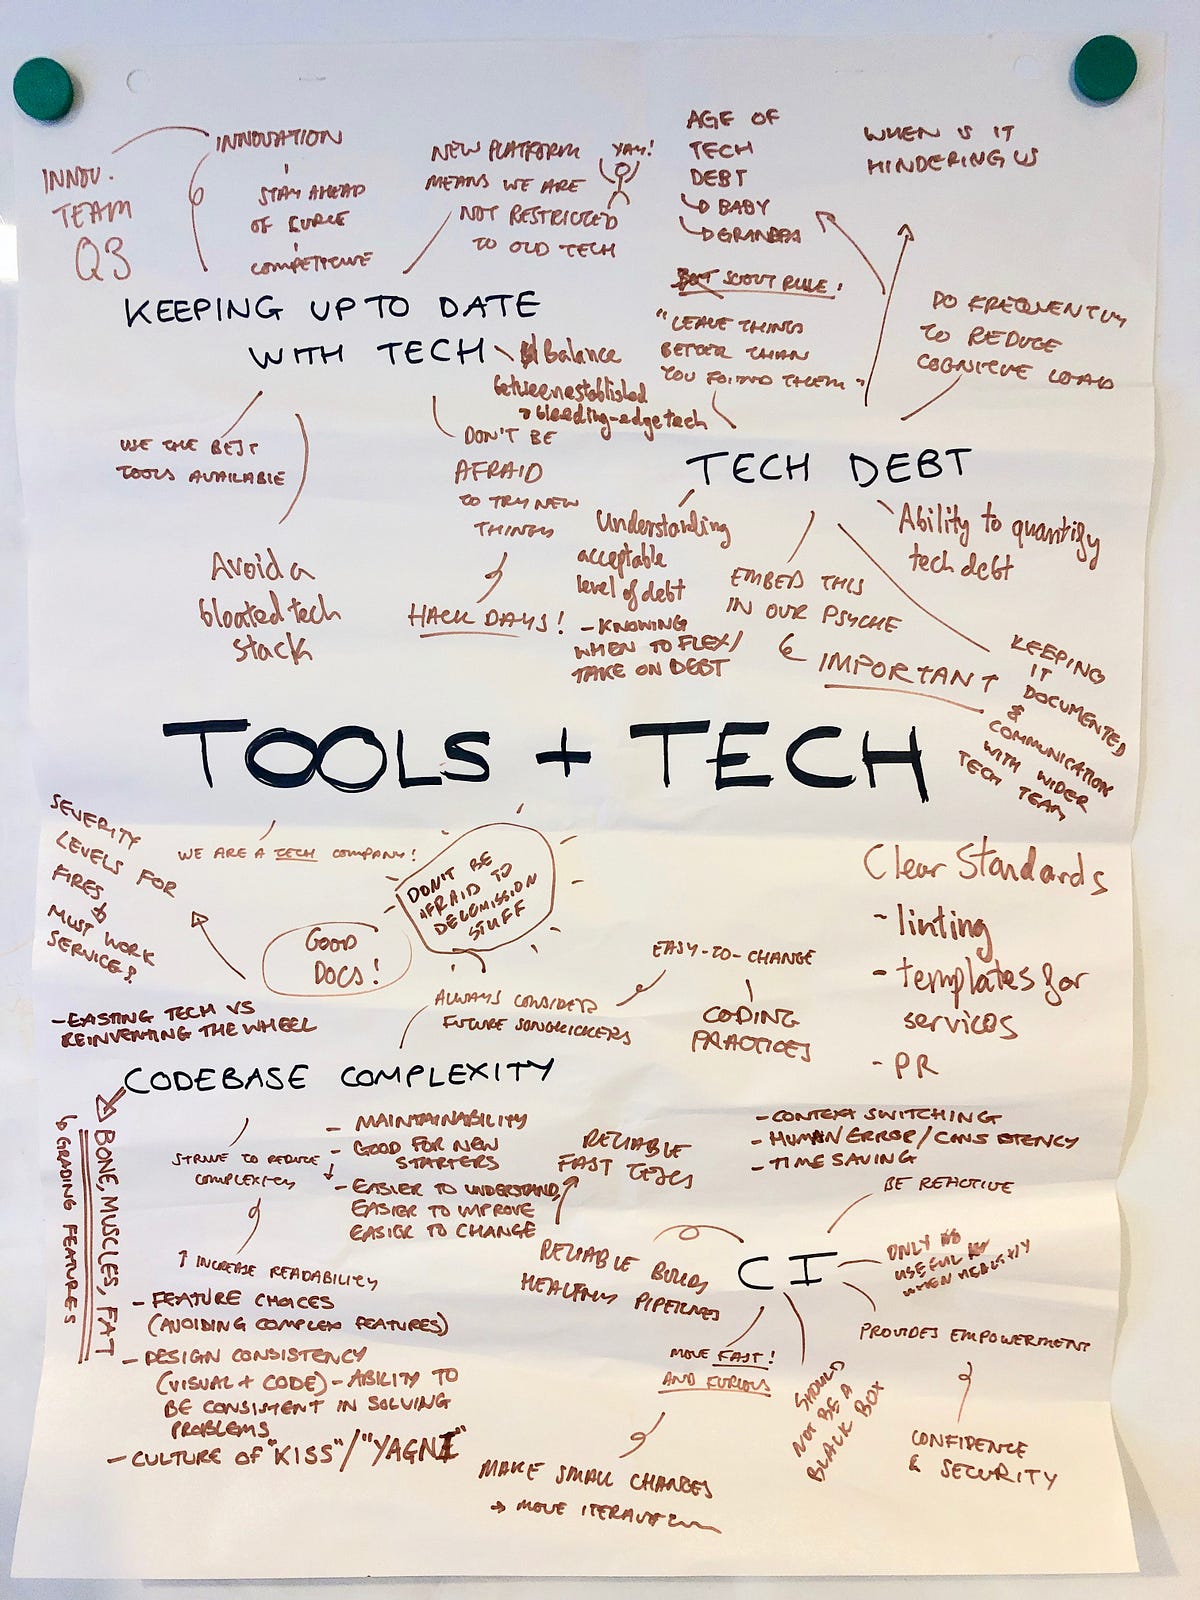 INNOV.
TEAM
Q3
INNOVATION
STAY AHEAD
OF CURVE
COMPETITIVE
NEW PLATFORM
MEANS WE ARE
NOT RESTRICTED
TO OLD TECH
YAY!
AGE OF
TECH
DEBT
BABY
GRANDPA
WHEN IS IT
HINDERING US
KEEPING UP TO DATE
WITH TECH
Balance
between established
+ bleeding-edge tech
SCOUT RULE!
"LEAVE THINGS
BETTER THAN
YOU FOUND THEM"
DO FREQUENTLY
TO REDUCE
COGNITIVE LOAD
USE THE BEST
TOOLS AVAILABLE
DON'T BE
AFRAID
TO TRY NEW
THINGS
HACK DAYS!
Avoid a
bloated tech
stack
TECH DEBT
Understanding
acceptable
level of debt
- KNOWING
WHEN TO FLEX/
TAKE ON DEBT
EMBED THIS
IN OUR PSYCHE
IMPORTANT
Ability to quantify
tech debt
KEEPING
IT
DOCUMENTED
&
COMMUNICATION
WITH WIDER
TECH TEAM
TOOLS + TECH
SEVERITY
LEVELS FOR
FIRES &
MUST WORK
SERVICES?
WE ARE A TECH COMPANY!
DON'T BE
AFRAID TO
DECOMISSION
STUFF
GOOD
DOCS!
Clear Standards
- linting
- templates for
services
- PR
EASY-TO-CHANGE
CODING
PRACTICES
ALWAYS CONSIDER
FUTURE SONGKICKERS
- EXISTING TECH VS
REINVENTING THE WHEEL
CODEBASE COMPLEXITY
BONE, MUSCLES, FAT
GRADING FEATURES
STRIVE TO REDUCE
COMPLEXITY
↑ INCREASE READABILITY
- MAINTAINABILITY
- GOOD FOR NEW
STARTERS
- EASIER TO UNDERSTAND,
EASIER TO IMPROVE
EASIER TO CHANGE
- FEATURE CHOICES
(AVOIDING COMPLEX FEATURES)
- DESIGN CONSISTENCY
(VISUAL + CODE) - ABILITY TO
BE CONSISTENT IN SOLVING
PROBLEMS
- CULTURE OF "KISS"/"YAGNI"
RELIABLE
FAST TESTS
RELIABLE BUILDS
HEALTHY PIPELINES
- CONTEXT SWITCHING
- HUMAN ERROR/CONSISTENCY
- TIME SAVING
BE REACTIVE
CI
ONLY
USEFUL
WHEN HEALTHY
PROVIDES EMPOWERMENT
CONFIDENCE
& SECURITY
MOVE FAST!
AND FURIOUS
SHOULD
NOT BE A
BLACK BOX
MAKE SMALL CHANGES
→ MOVE ITERATIVELY